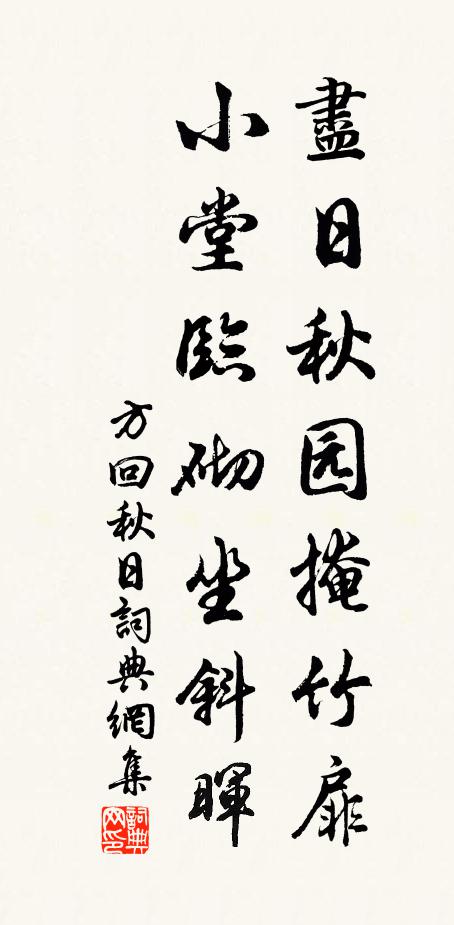 盡日秋园掩竹扉
小堂臨砌坐斜暉
方回秋日詞典網集
詞典网印